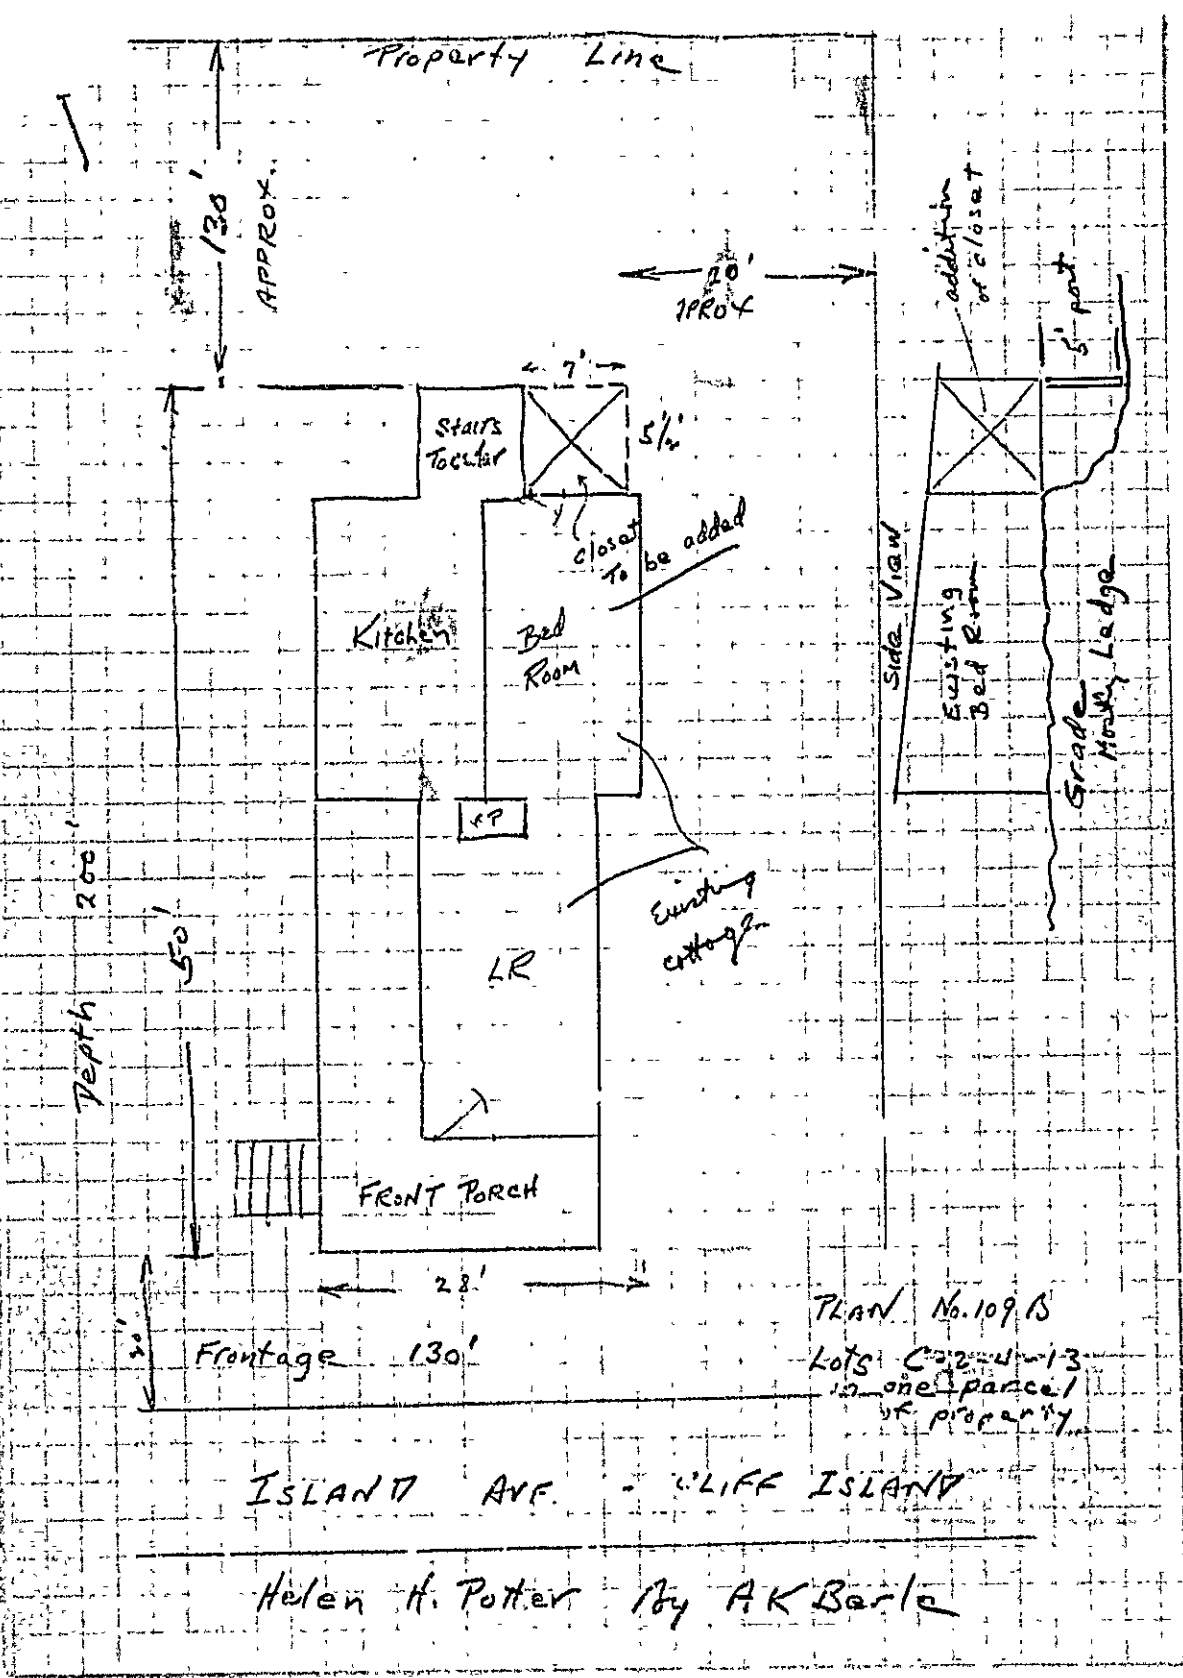 Property Line
130'
APPROX.
20'
APROX
addition
of closet
5' post
7'
5½'
Stairs
To
closet
To be added
Kitchen
Bed
Room
Side View
Existing
Bed Room
Grade
Mostly Ledge
FP
Existing
cottage
LR
Depth 200'
50'
FRONT PORCH
28'
20'
Frontage 130'
PLAN No. 109 B
Lots C-2-4-13
in one parcel
of property
ISLAND AVE. - CLIFF ISLAND
Helen H. Potter By A K Berle